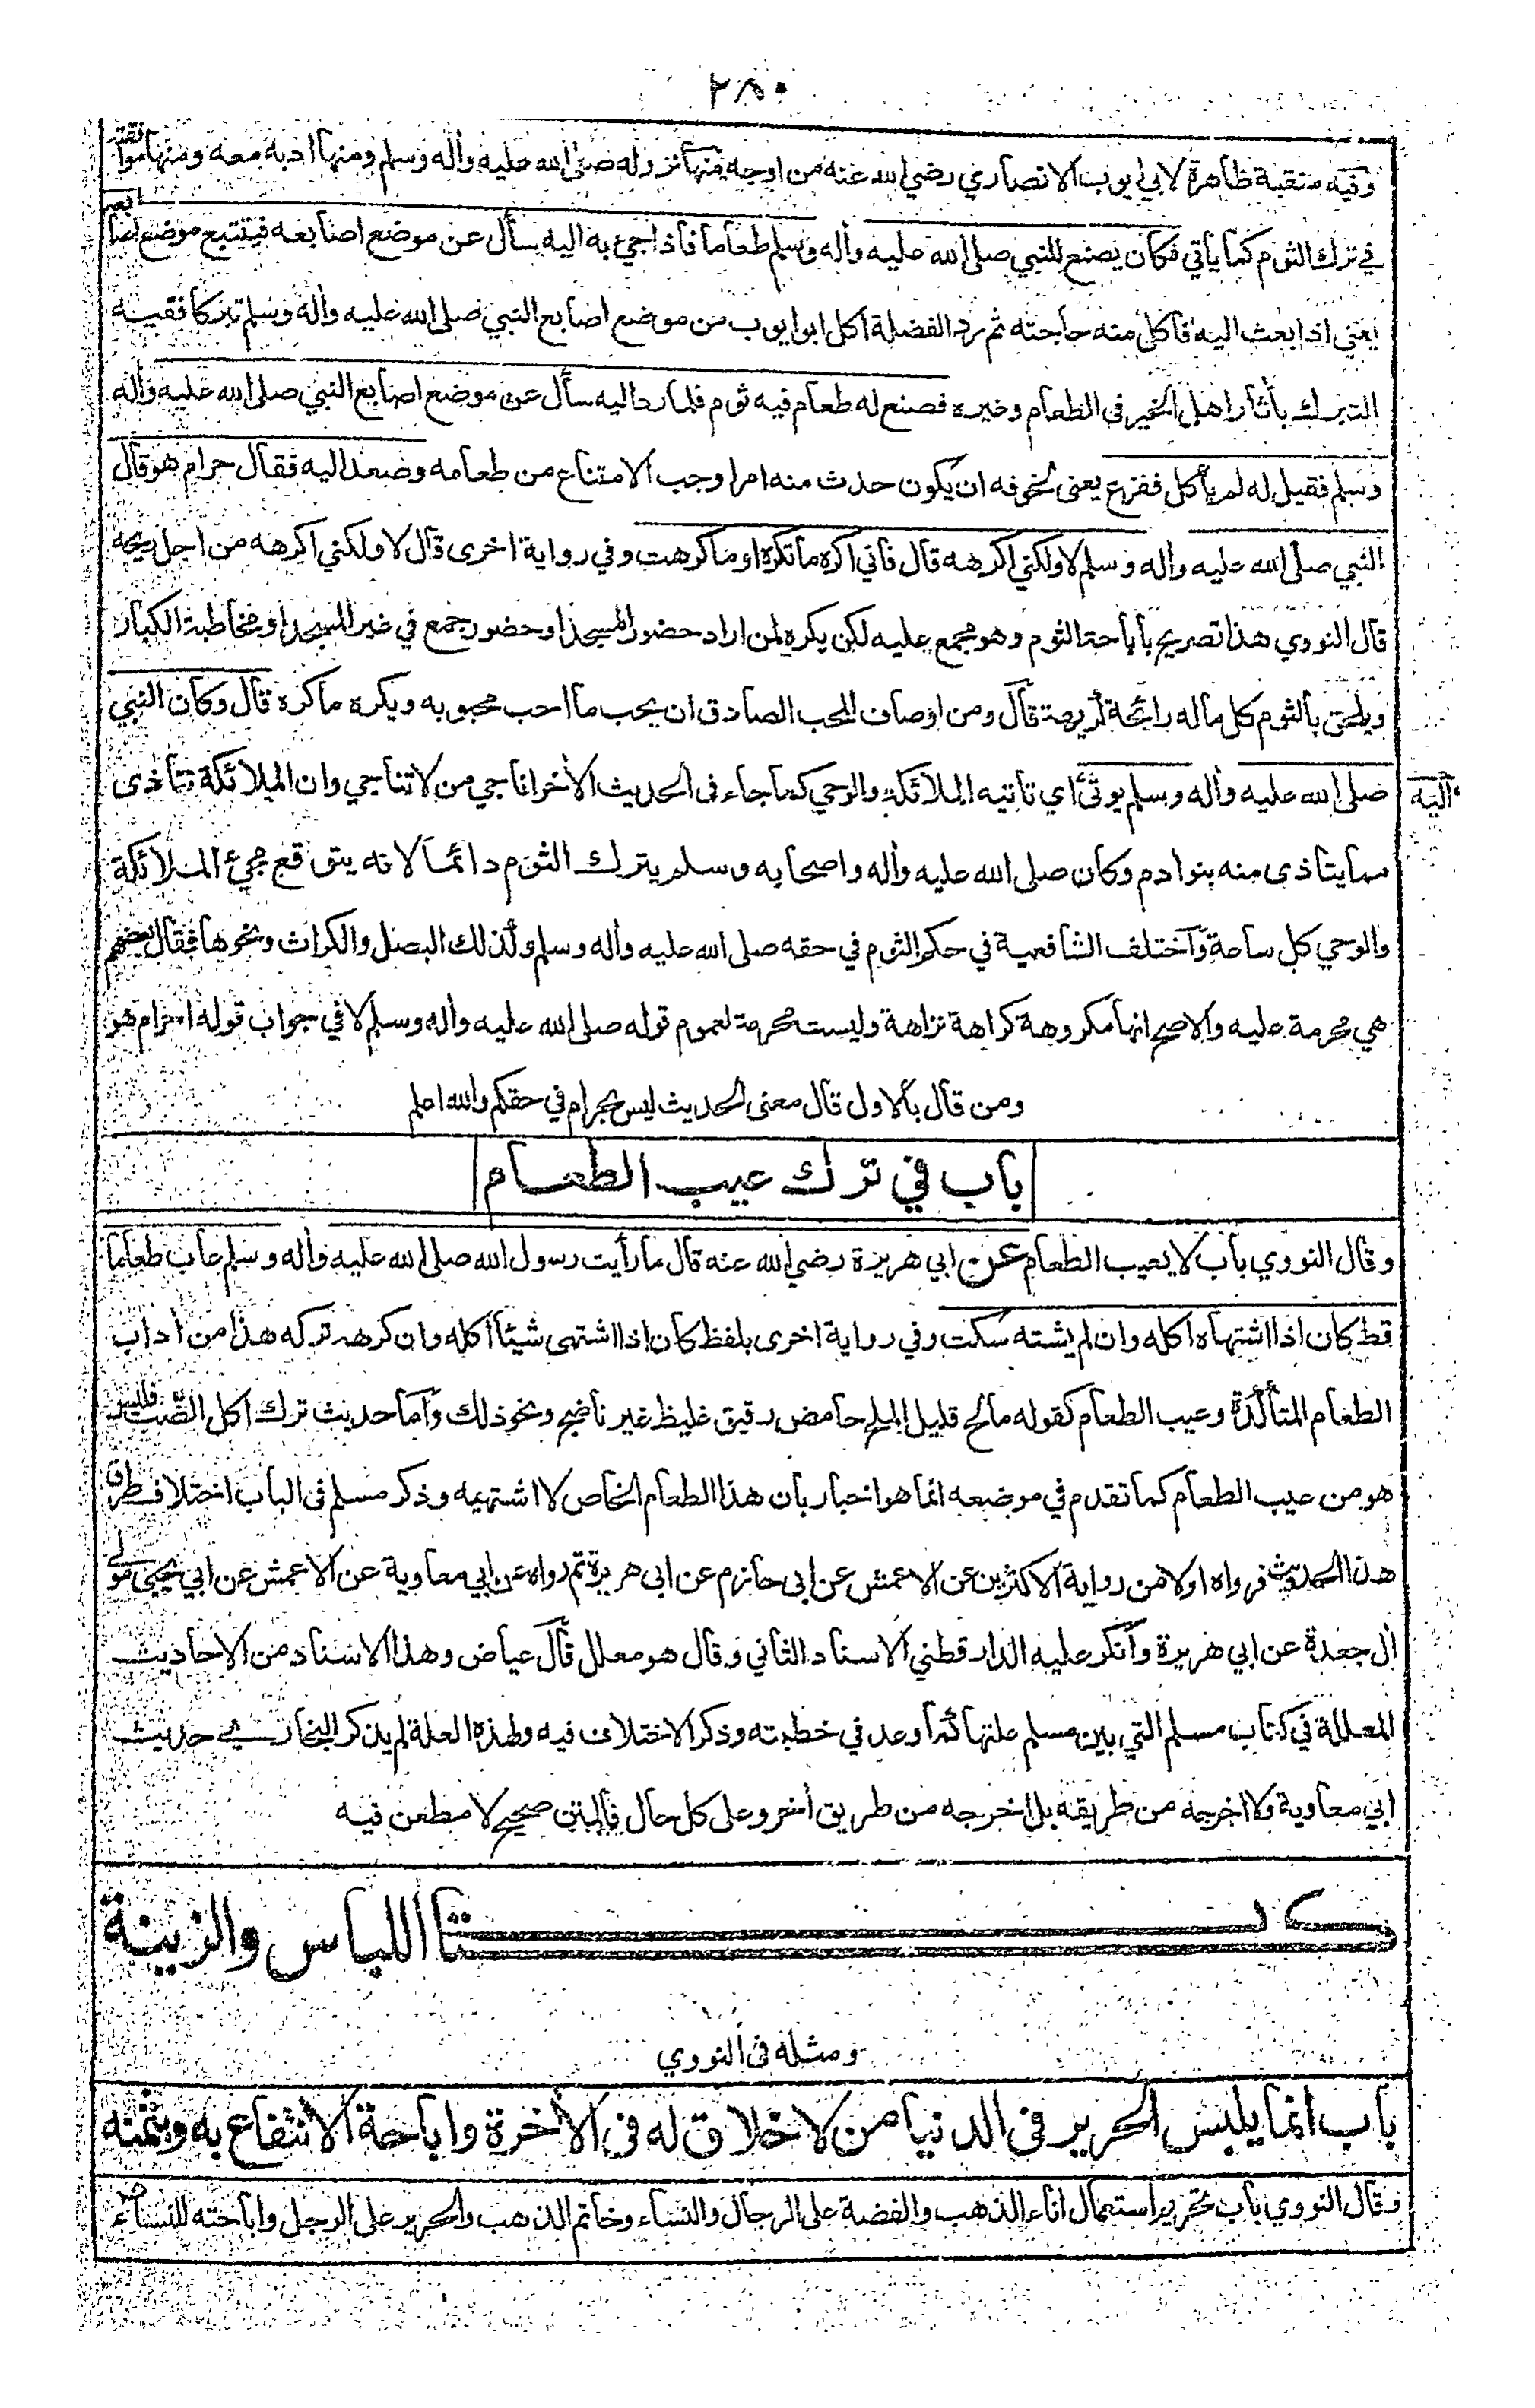 ٢٨٠
وفيه منقبة ظاهرة لابي ايوب الانصاري رضي الله عنه من اوجه منها نزوله صلى الله عليه وأله وسلم ومنها ادبه معه ومنها موافقته
في ترك الثوم كما يأتي فكان يصنع للنبي صلى الله عليه وأله وسلم طعاما فاذا جيئ به اليه سأل عن موضع اصابعه فيتتبع موضع اصابعه
يعني اذا بعث اليه فاكل منه حاجته ثم رد الفضلة اكل ابوايوب من موضع اصابع النبي صلى الله عليه وأله وسلم تبركا ففيه
التبرك بأثار اهل الخير في الطعام وغيره فصنع له طعام فيه ثوم فلما رد اليه سأل عن موضع اصابع النبي صلى الله عليه وأله
وسلم فقيل له لم يأكل ففزع يعني لخوفه ان يكون حدث منه امر اوجب الامتناع من طعامه وصعد اليه فقال حرام هو قال
النبي صلى الله عليه وأله وسلم لا ولكني اكرهه قال فاني اكره ما تكره او ما كرهت وفي رواية اخرى قال لا ولكني اكرهه من اجل ريحه
قال النووي هذا تصريح بأباحة الثوم وهو مجمع عليه لكن يكره لمن اراد حضور المسجد او حضور جمع في غير المسجد او مخاطبة الكبار
ويلحق بالثوم كل ماله رائحة كريهة قال ومن اوصاف المحب الصادق ان يحب ما احب محبوبه ويكره ما كره قال وكان النبي
صلى الله عليه وأله وسلم يوتى اي تأتيه الملائكة والوحي كما جاء في الحديث الأخر اناجي من لا تناجي وان الملائكة تتأذى
اليه
مما يتأذى منه بنو ادم وكان صلى الله عليه وأله واصحابه وسلم يترك الثوم دائما لانه يتوقع مجيئ الملائكة
والوحي كل ساعة واختلف الشافعية في حكم الثوم في حقه صلى الله عليه وأله وسلم وكذلك البصل والكراث ونحوها فقال بعضهم
هي محرمة عليه والاصح انها مكروهة كراهة نزاهة وليست محرمة لعموم قوله صلى الله عليه وأله وسلم لا في جواب قوله احرام هو
ومن قال بالاول قال معنى الحديث ليس بحرام في حقكم والله اعلم
باب في ترك عيب الطعام
وقال النووي باب لا يعيب الطعام عن ابي هريرة رضي الله عنه قال ما رأيت رسول الله صلى الله عليه وأله وسلم عاب طعاما
قط كان اذا اشتهاه اكله وان لم يشته سكت وفي رواية اخرى بلفظ كان اذا اشتهى شيئا اكله وان كرهه تركه هذا من أداب
الطعام المتأكدة وعيب الطعام كقوله مالح قليل الملح حامض رقيق غليظ غير ناضج ونحو ذلك واما حديث ترك اكل الضب فليس
هو من عيب الطعام كما تقدم في موضعه انما هو اخبار بان هذا الطعام الخاص لا اشتهيه وذكر مسلم في الباب اختلاف طرق
هذا الحديث فرواه اولا من رواية الاكثرين عن الاعمش عن ابي حازم عن ابي هريرة ثم رواه عن ابي معاوية عن الاعمش عن ابي يحيى مولى
أل جعدة عن ابي هريرة وانكر عليه الدارقطني الاسناد الثاني وقال هو معلل قال عياض وهذا الاسناد من الاحاديث
المعللة في كتاب مسلم التي بين مسلم علتها كما وعد في خطبته وذكر الاختلاف فيه ولهذه العلة لم يذكر البخاري حديث
ابي معاوية ولا اخرجه من طريقه بل اخرجه من طريق أخر وعلى كل حال فالمتن صحيح لا مطعن فيه
كتاب اللباس والزينة
ومثله في النووي
باب انما يلبس الحرير في الدنيا من لا خلاق له في الأخرة واباحة الانتفاع به وبثمنه
وقال النووي باب تحريم استعمال اناء الذهب والفضة على الرجال والنساء وخاتم الذهب والحرير على الرجل واباحته للنساء